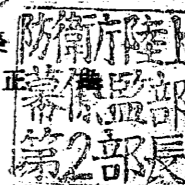 防衛庁陸上
正
幕僚監部
第2部長